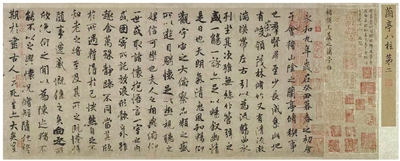 蘭亭八柱第二
褚模王羲之蘭亭帖
永和九年歲在癸丑暮春之初會
于會稽山陰之蘭亭脩稧事
也群賢畢至少長咸集此地
有崇山峻領茂林脩竹又有清流激
湍暎帶左右引以為流觴曲水
列坐其次雖無絲竹管弦之
盛一觴一詠亦足以暢敘幽情
是日也天朗氣清惠風和暢仰
觀宇宙之大俯察品類之盛
所以遊目騁懷足以極視聽之
娛信可樂也夫人之相與俯仰
一世或取諸懷抱悟言一室之內
或因寄所託放浪形骸之外雖
趣舍萬殊靜躁不同當其欣
於所遇蹔得於己怏然自足不
知老之將至及其所之既惓情
隨事遷感慨係之矣向之所
欣俛仰之間以為陳迹猶不
能不以之興懷況脩短隨化終
期於盡古人云死生亦大矣豈